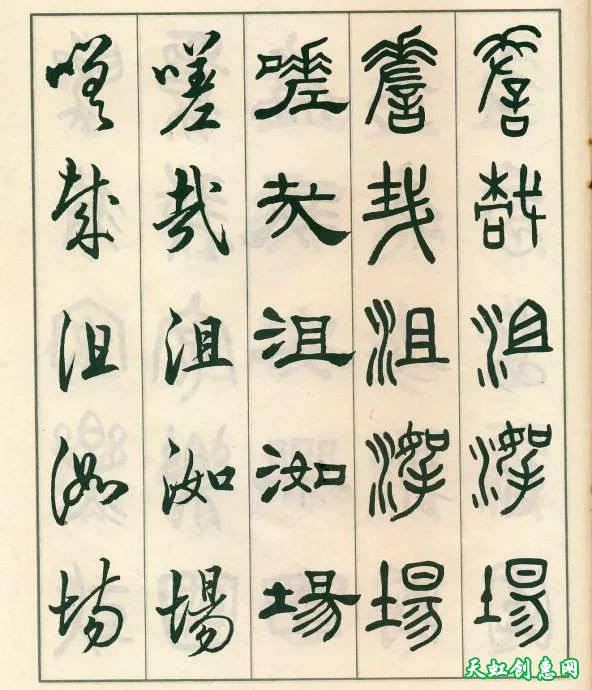 嗟哉沮洳場
嗟哉沮洳場
嗟哉沮洳場
嗟哉沮洳場
嗟哉沮洳場
天虹创意网